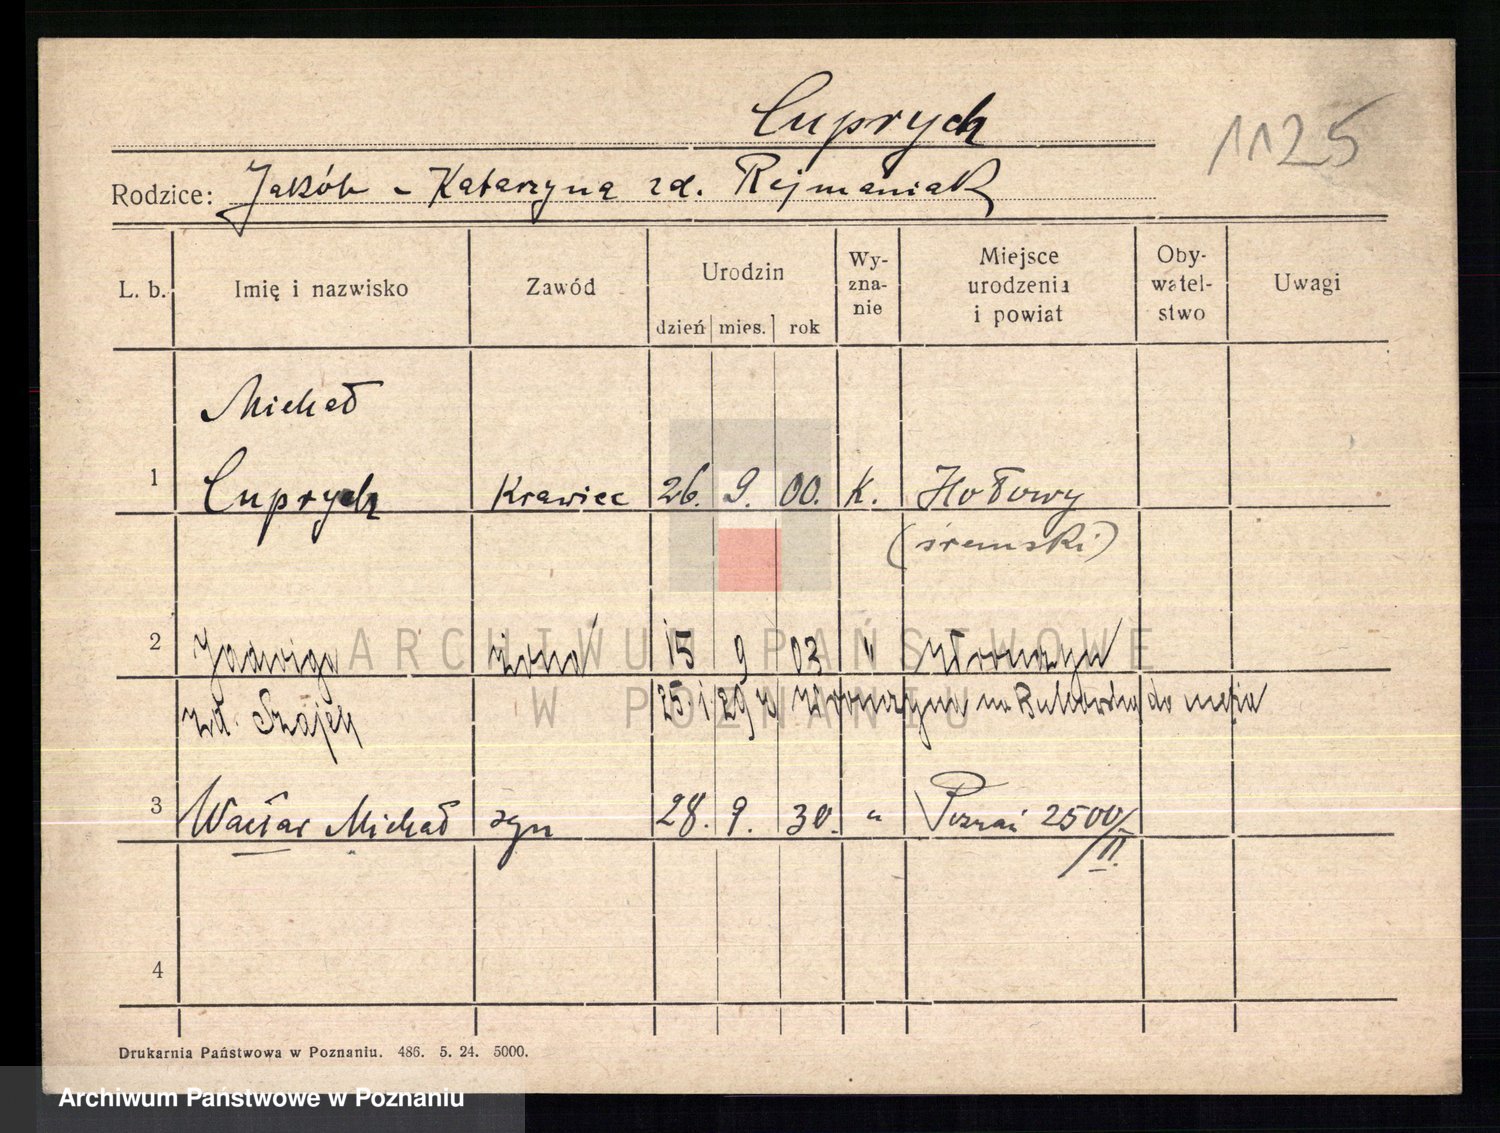 Cuprych
1125
Rodzice: Jakób - Katarzyna zd. Rejmaniak
L. b. Imię i nazwisko Zawód Urodzin dzień mies. rok Wy-zna-nie Miejsce urodzenia i powiat Oby-watel-stwo Uwagi
Michał
1 Cuprych Krawiec 26. 9. 00. K. Hołowy
(śremski)
2 Jadwiga żona 15 9 03 " Wronczyn
zd. Szajek 25. 1. 29 z Wronczyna na do męża
3 Wacław Michał syn 28. 9. 30. " Poznań 2500/II.
4
ARCHIWUM PAŃSTWOWE
W POZNANIU
Drukarnia Państwowa w Poznaniu. 486. 5. 24. 5000.
Archiwum Państwowe w Poznaniu